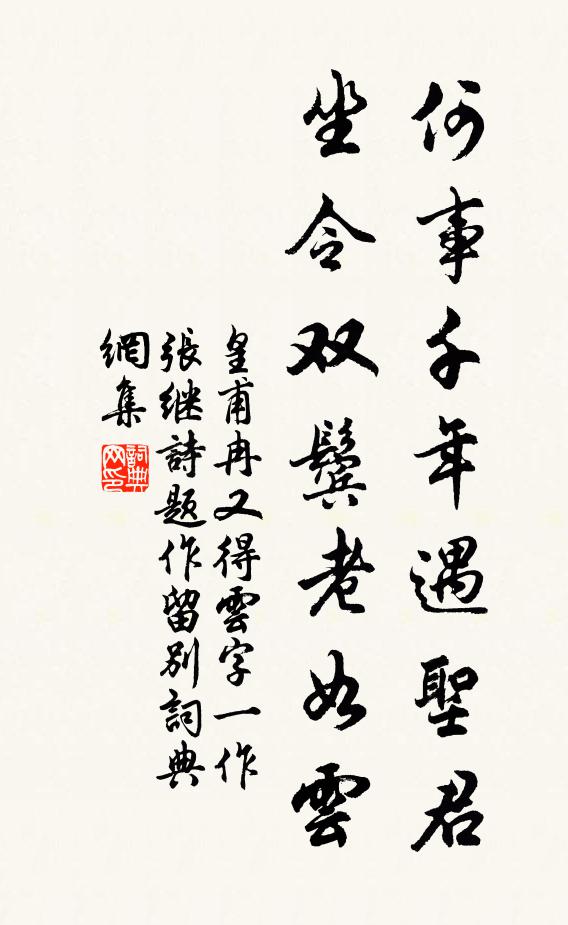 何事千年遇聖君
坐令双鬓老如雲
皇甫冉又得雲字一作
張继詩题作留別詞典
網集
詞典
网印